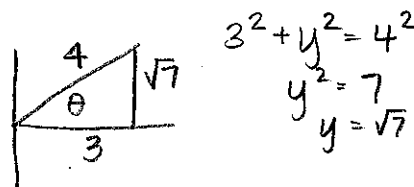 4
√7
θ
3
3² + y² = 4²
y² = 7
y = √7